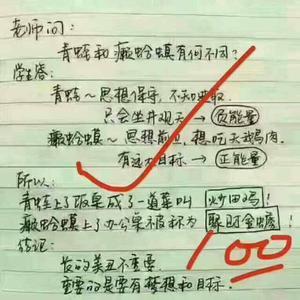 老师问：
青蛙和癞蛤蟆有何不同？
学生答：
青蛙～思想保守，不知进取
只会坐井观天→负能量
癞蛤蟆～思想前卫，想吃天鹅肉。
有远大目标→正能量
所以：
青蛙上了饭桌成了一道菜叫炒田鸡！
癞蛤蟆上了办公桌被称为聚财金蟾
结论：
长的美丑不重要
重要的是要有梦想和目标。
100